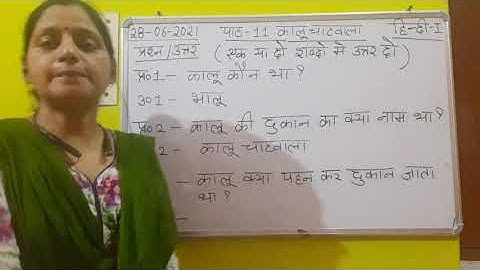 28-06-2021 पाठ-11 कालू चाटवाला हिन्दी-I
प्रश्न/उत्तर (एक या दो शब्दो में उत्तर दो)
प्र०1- कालू कौन था?
उ०1- भालू
प्र०2- कालू की दुकान का क्या नाम था?
2- कालू चाटवाला
- कालू क्या पहन कर दुकान जाता
था?
-